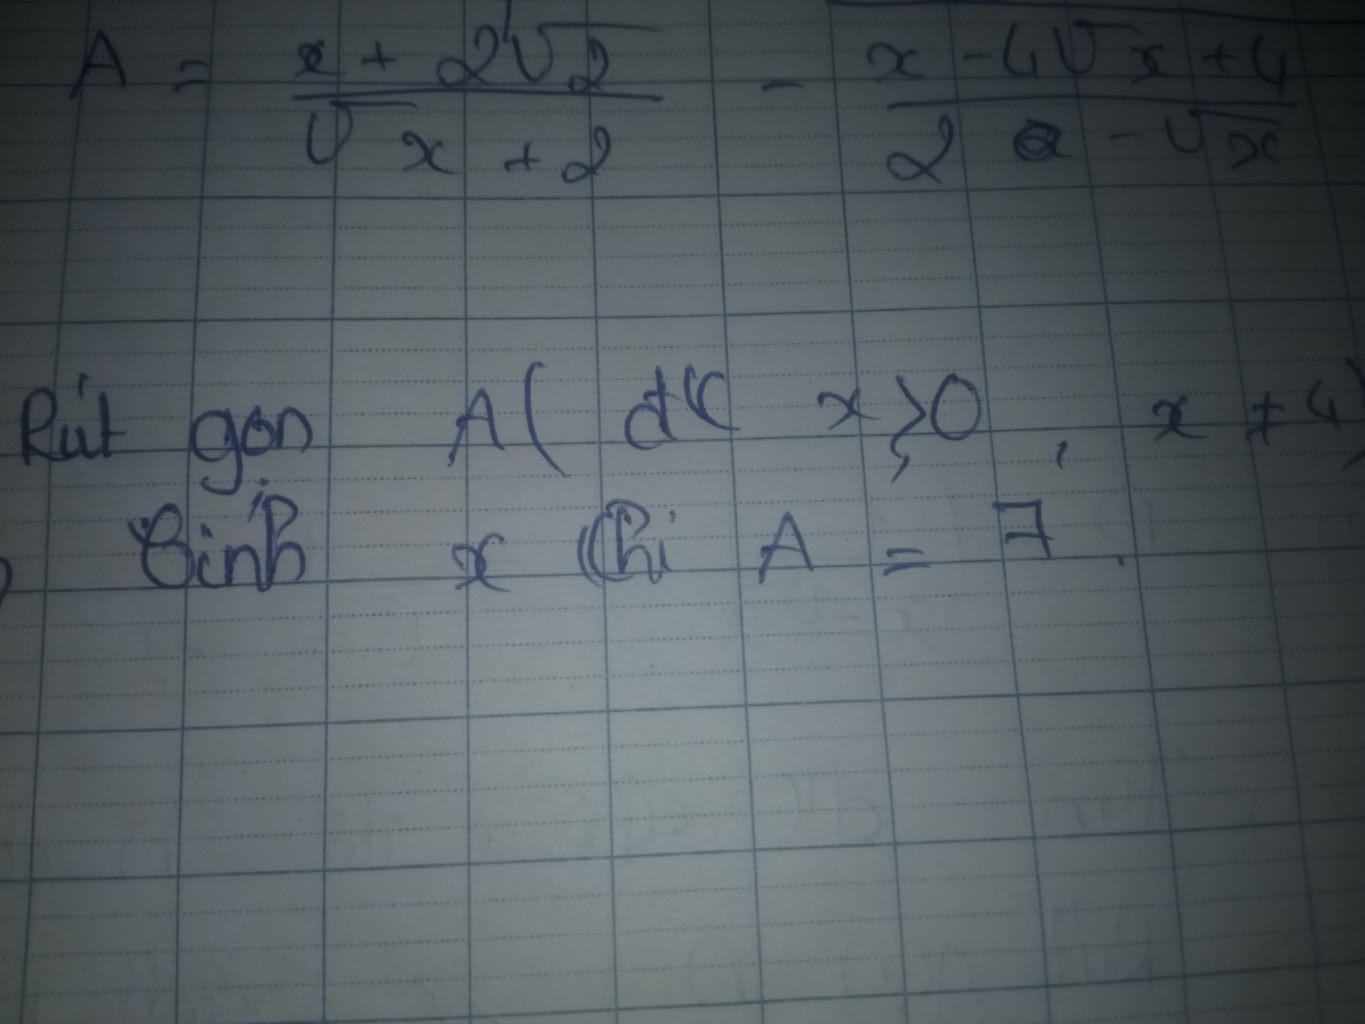 A = x + 2√2 / √x + 2 - x - 4√x + 4 / 2 - √x
Rút gọn A( đk x ⩾ 0, x ≠ 4)
Tính x khi A = 7.